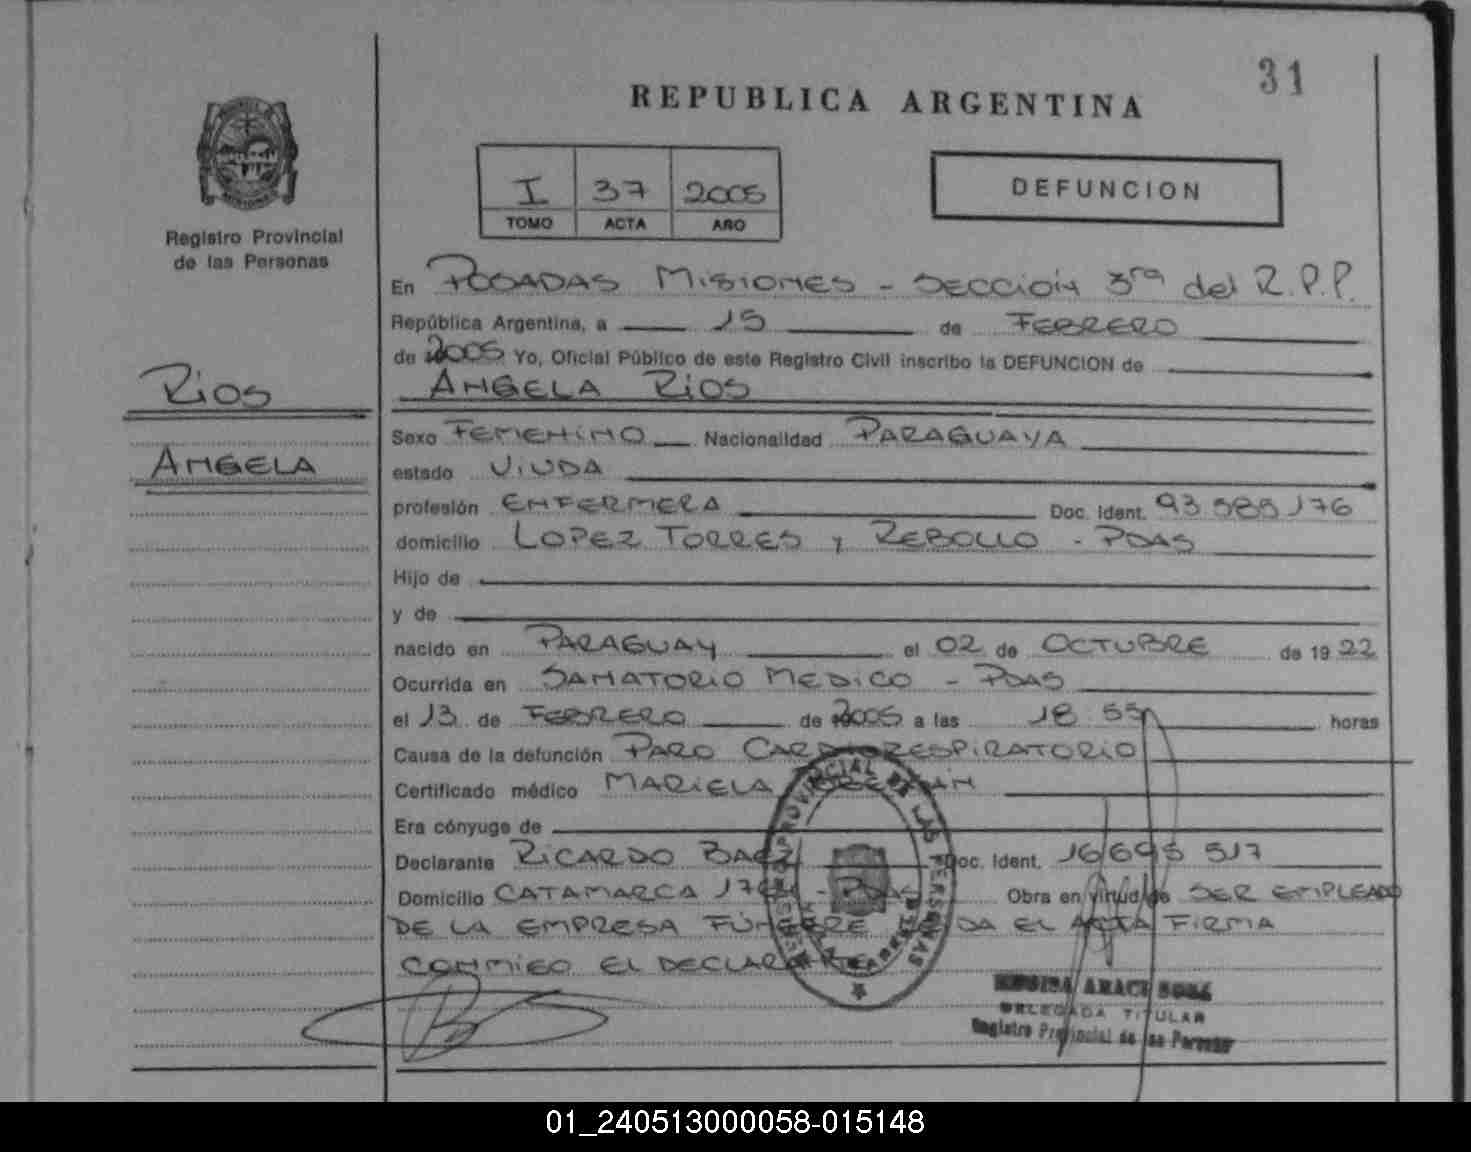 31
REPUBLICA ARGENTINA
I 37 2005
TOMO ACTA AÑO
DEFUNCION
Registro Provincial
de las Personas
En POSADAS MISIONES - SECCION 3ra del R.P.P.
República Argentina, a 15 de FEBRERO
de 2005 Yo, Oficial Público de este Registro Civil inscribo la DEFUNCION de
ANGELA RIOS
RIOS
ANGELA
Sexo FEMENINO Nacionalidad PARAGUAYA
estado VIUDA
profesión ENFERMERA Doc. Ident. 93.585.176
domicilio LOPEZ TORRES y REBOLLO - PDAS
Hijo de
y de
nacido en PARAGUAY el 02 de OCTUBRE de 1922
Ocurrida en SANATORIO MEDICO - PDAS
el 13 de FEBRERO de 2005 a las 18.55 horas
Causa de la defunción PARO CARDIORESPIRATORIO
Certificado médico MARIELA
Era cónyuge de
Declarante RICARDO BAEZ Doc. Ident. 16.695.517
Domicilio CATAMARCA - PDAS Obra en virtud de SER EMPLEADO
DE LA EMPRESA FÚNEBRE EL ACTA FIRMA
CONMIGO EL DECLARANTE
PROVINCIAL DE LAS PERSONAS
DELEGADA TITULAR
Registro Provincial de las Personas
01_240513000058-015148